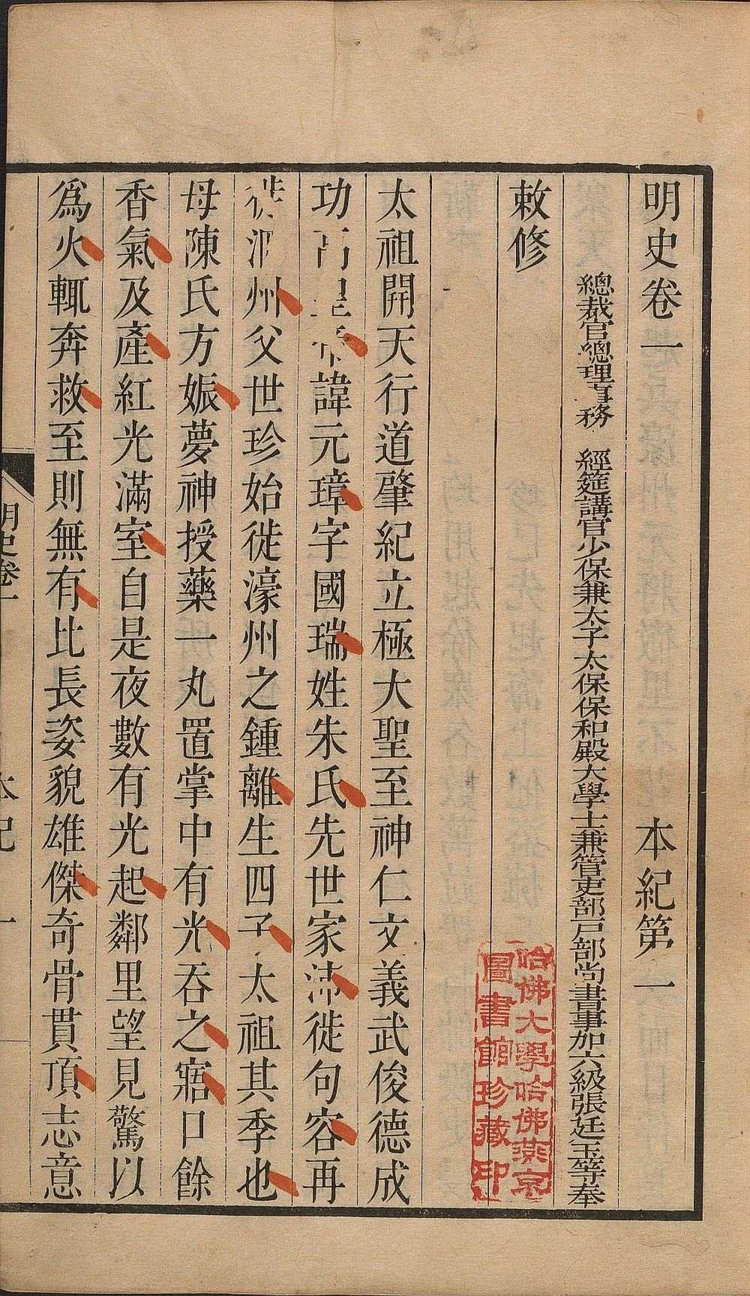 明史卷一　本紀第一
總裁官總理事務　經筵講官少保兼太子太保保和殿大學士兼管吏部戶部尚書事加六級張廷玉等奉
敕修
哈佛大學哈佛燕京
圖書館珍藏印
太祖開天行道肇紀立極大聖至神仁文義武俊德成
功高皇帝諱元璋字國瑞姓朱氏先世家沛徙句容再
徙泗州父世珍始徙濠州之鍾離生四子太祖其季也
母陳氏方娠夢神授藥一丸置掌中有光吞之寤口餘
香氣及產紅光滿室自是夜數有光起鄰里望見驚以
為火輒奔救至則無有比長姿貌雄傑奇骨貫頂志意
明史卷一　本紀　一